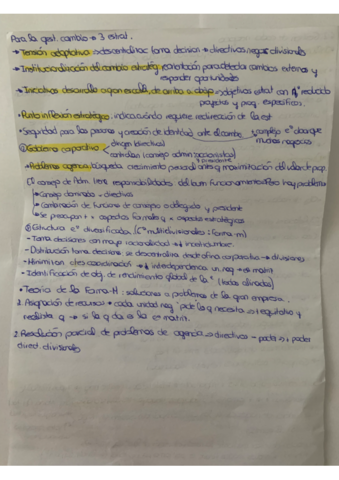 Para la gest. cambio → 3 estrat.
→ Tensión adaptativa → descentralizac toma decision → directivos neg. divisionales
→ Institucionalización del cambio estratég: orientación para detectar cambios externos y
responder oportunidades
→ Iniciativas desarrollo a gran escala, de arriba a abajo → objetivos estrat con nº reducido
proyectos y prog. específicos.
→ Punto inflexión estratégico: indica cuándo requiere redirección de la est
→ Seguridad para las personas y creación de identidad ante el cambio → complejo eª abarque
muchos negocios
① Gobierno corporativo
dirigen (directivos)
controlan (consejo admin
+ presidente
→ Problemas agencia: búsqueda crecimiento personal antes q maximización del valor de
① consejo de Adm. tiene responsabilidades del buen funcionamiento. Pero hay problemas
→ Consejo dominado → directivos
→ Combinación de funciones de consejero delegado y president
→ Se preocupan + x aspectos formales q x aspectos estratégicos
② Estructura eª diversificadas, (Cª multidivisionales: forma-m)
- Toma decisiones con mayor racionalidad → incertidumbre.
- Distribución toma decisiones se descentraliza desde oficina corporativa → divisiones
- Minimizan ctes coordinación → ↓ interdependencia un. neg → es matriz
- Identificación de obj. de rendimiento global de la eª (todas divisiones)
• Teoria de la Forma-M: soluciones a problemas de la gran empresa.
1. Asignación de recursos → cada unidad neg pide lo q necesita → + equitativo y
realista q → si lo q da es la eª matriz.
2. Resolución parcial de problemas de agencia → directivos - poder →, + poder
direct. divisionales